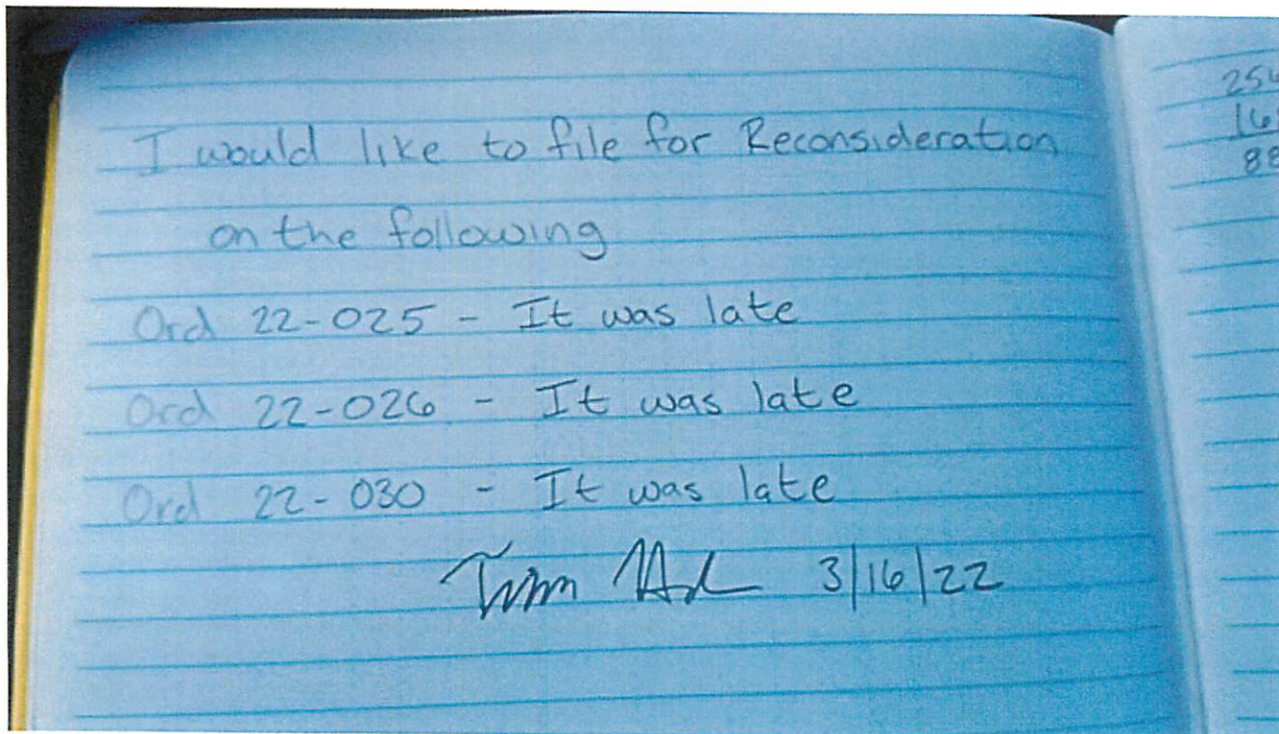 I would like to file for Reconsideration
on the following
Ord 22-025 - It was late
Ord 22-026 - It was late
Ord 22-030 - It was late
3/16/22
88